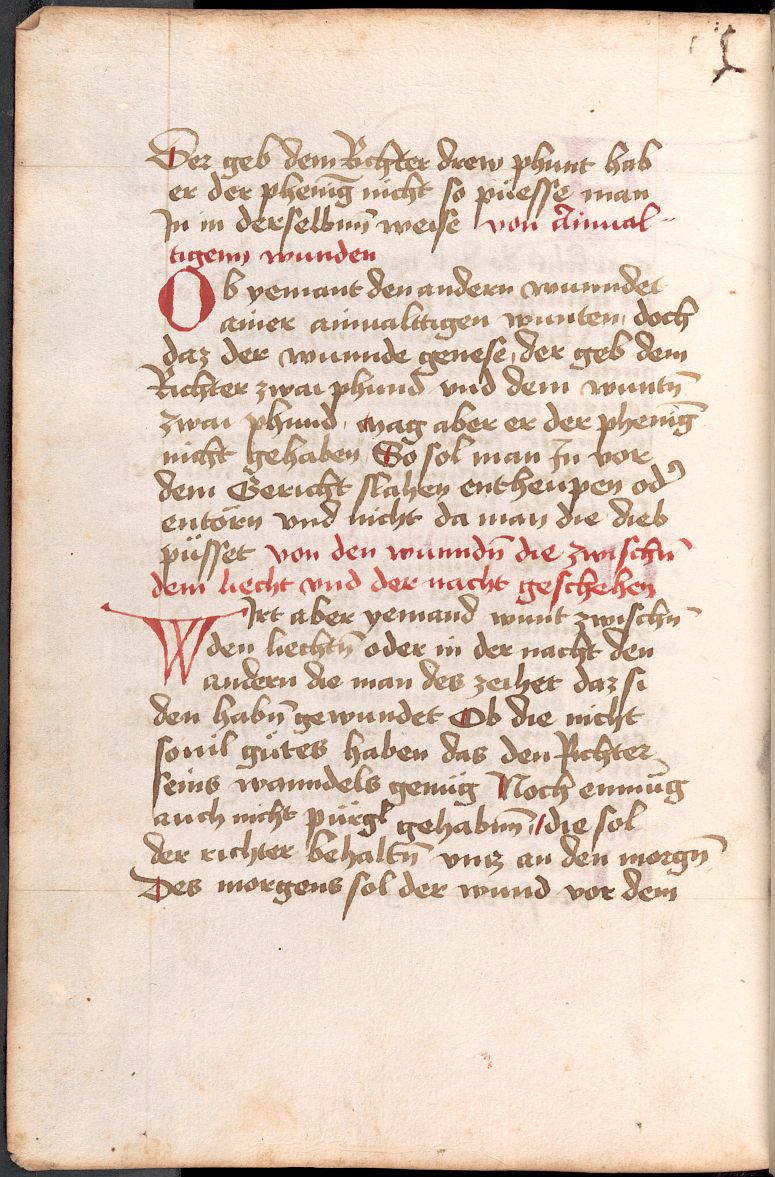 Der geb dem Richter drew phunt hab
er der pheniḡ nicht so püesse man
In in derselbm̄ weise von Ainual-
tigenn wunden
Ob yemant den andern wunndet
ainer ainualttigen wunten, doch
daz der wunnde genese, der geb dem
Richter zwai phund vnd dem wuntn̄
zwai phund, mag aber er der pheniḡ
nicht gehaben So sol man In vor
dem Gericht slahen entheupen od᾽
entörn vnd nicht da man die dieb
püsset von den wunndn̄ die zwischn̄
dem liecht vnd der nacht geschehen
Wirt aber yemand wunt zwischn̄
den liechtn̄ oder in der nacht den
andern die man des zeihet daz si
den habn̄ gewundet Ob die nicht
souil gütes haben das den Richter
seins wanndels genüg Noch enmüg
auch nicht pürgl gehabm̄, die sol
der richter behaltn̄ vnz an den morgn̄
Des morgens sol der wund vor dem